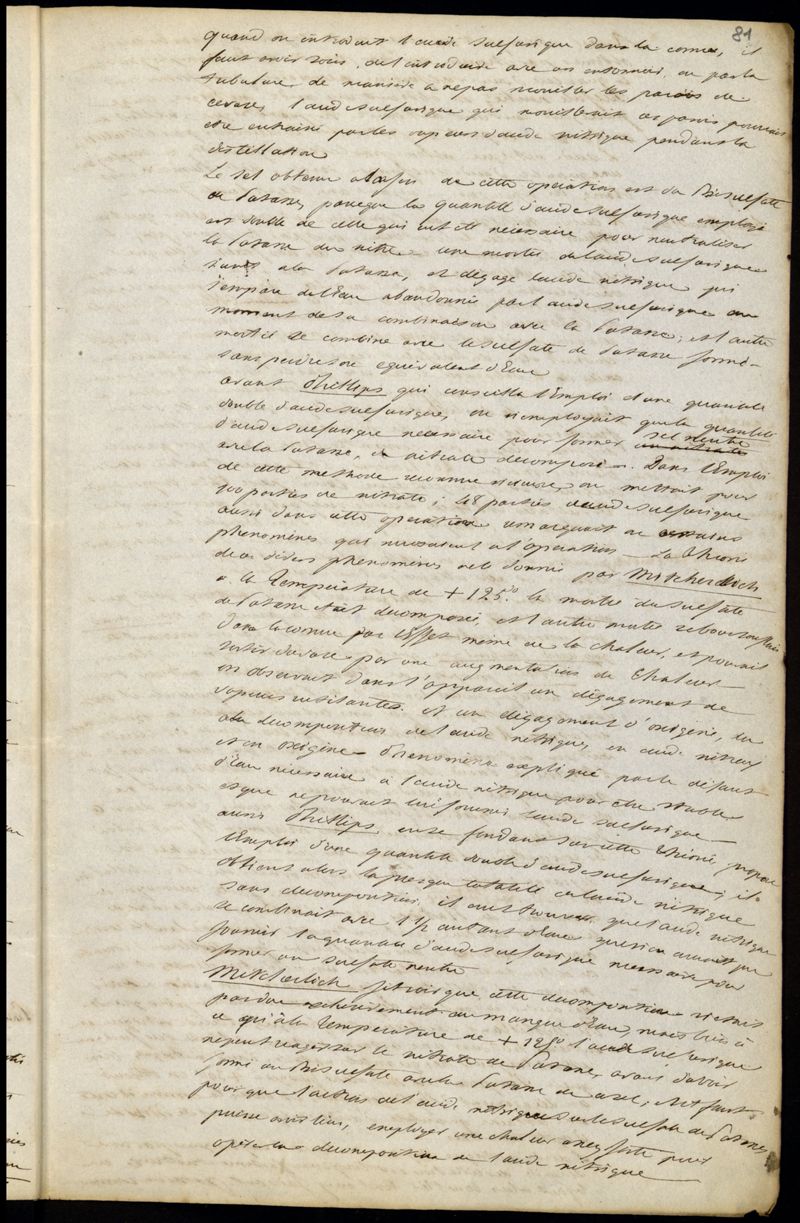 81
quand on introduit l'acide sulfurique dans la cornue, il
faut avoir soin de l'introduire avec un entonnoir, ou par la
tubulure de manière a ne pas mouiller les parois de
l'acide sulfurique qui mouillerait ces parois pourrait
etre entrainé par les vapeurs d'acide nitrique pendant la
distillation
Le sel obtenu a la fin de cette operation est du Bisulfate
de Potasse, parceque la quantité d'acide sulfurique employé
est double de celle qui eut été nécessaire pour neutraliser
la Potasse du nitre une moitié de l'acide sulfurique
s'unit a la Potasse, et dégage l'acide nitrique qui
s'empare de l'Eau abandonnée par l'acide sulfurique au
moment de sa combinaison avec la Potasse; et l'autre
moitié se combine avec le sulfate de Potasse formé
sans perdre son equivalent d'Eau
avant Phillips qui conseilla l'Emploi d'une quantité
double d'acide sulfurique, on n'employait que la quantité
d'acide sulfurique necessaire pour former sel neutre
avec la Potasse, du nitrate decomposé. Dans l'Emploi
de cette methode on mettait pour
100 parties de nitrate; 48 parties d'acide sulfurique
aussi dans cette operation remarquait on certains
phenomènes qui nuisaient a l'operation La Théorie
de ces divers phenomènes a été donnée par Mitscherlich
a la Temperature de + 125° la moitié du sulfate
de Potasse etait decomposé, et l'autre moitié
dans la cornue par l'Effet même de la chaleur, et pouvait
sortir du vase par une augmentation de Chaleur
on observait dans l'appareil un dégagement de
vapeurs rutilantes et un dégagement d'oxigène, du
a la decomposition de l'acide nitrique, en acide nitreux
et en oxigène Phenomène expliqué par le défaut
d'Eau nécessaire a l'acide nitrique pour etre stable
et que ne pouvait lui fournir l'acide sulfurique
aussi Phillips, en se fondant sur cette Théorie, propose
l'Emploi d'une quantité double d'acide sulfurique; il
obtient alors la presque totalité de l'acide nitrique
sans decomposition, et que l'acide nitrique
se combinait avec 1 1/2 autant d'Eau que si on avait
fourni la quantité d'acide sulfurique necessaire pour
former un sulfate neutre
Mitscherlich fit voir que cette decomposition n'etait
pas due au manque d'Eau, mais bien à
ce qu'à la Temperature de + 125° l'acide sulfurique
ne peut reagir sur le nitrate de Potasse, avais d'abord
formé un Bisulfate avec la Potasse de et il faut
pour que l'action de l'acide nitrique sur le sulfate de Potasse
puisse avoir lieu, employer une chaleur assez forte pour
operer la decomposition de l'acide nitrique